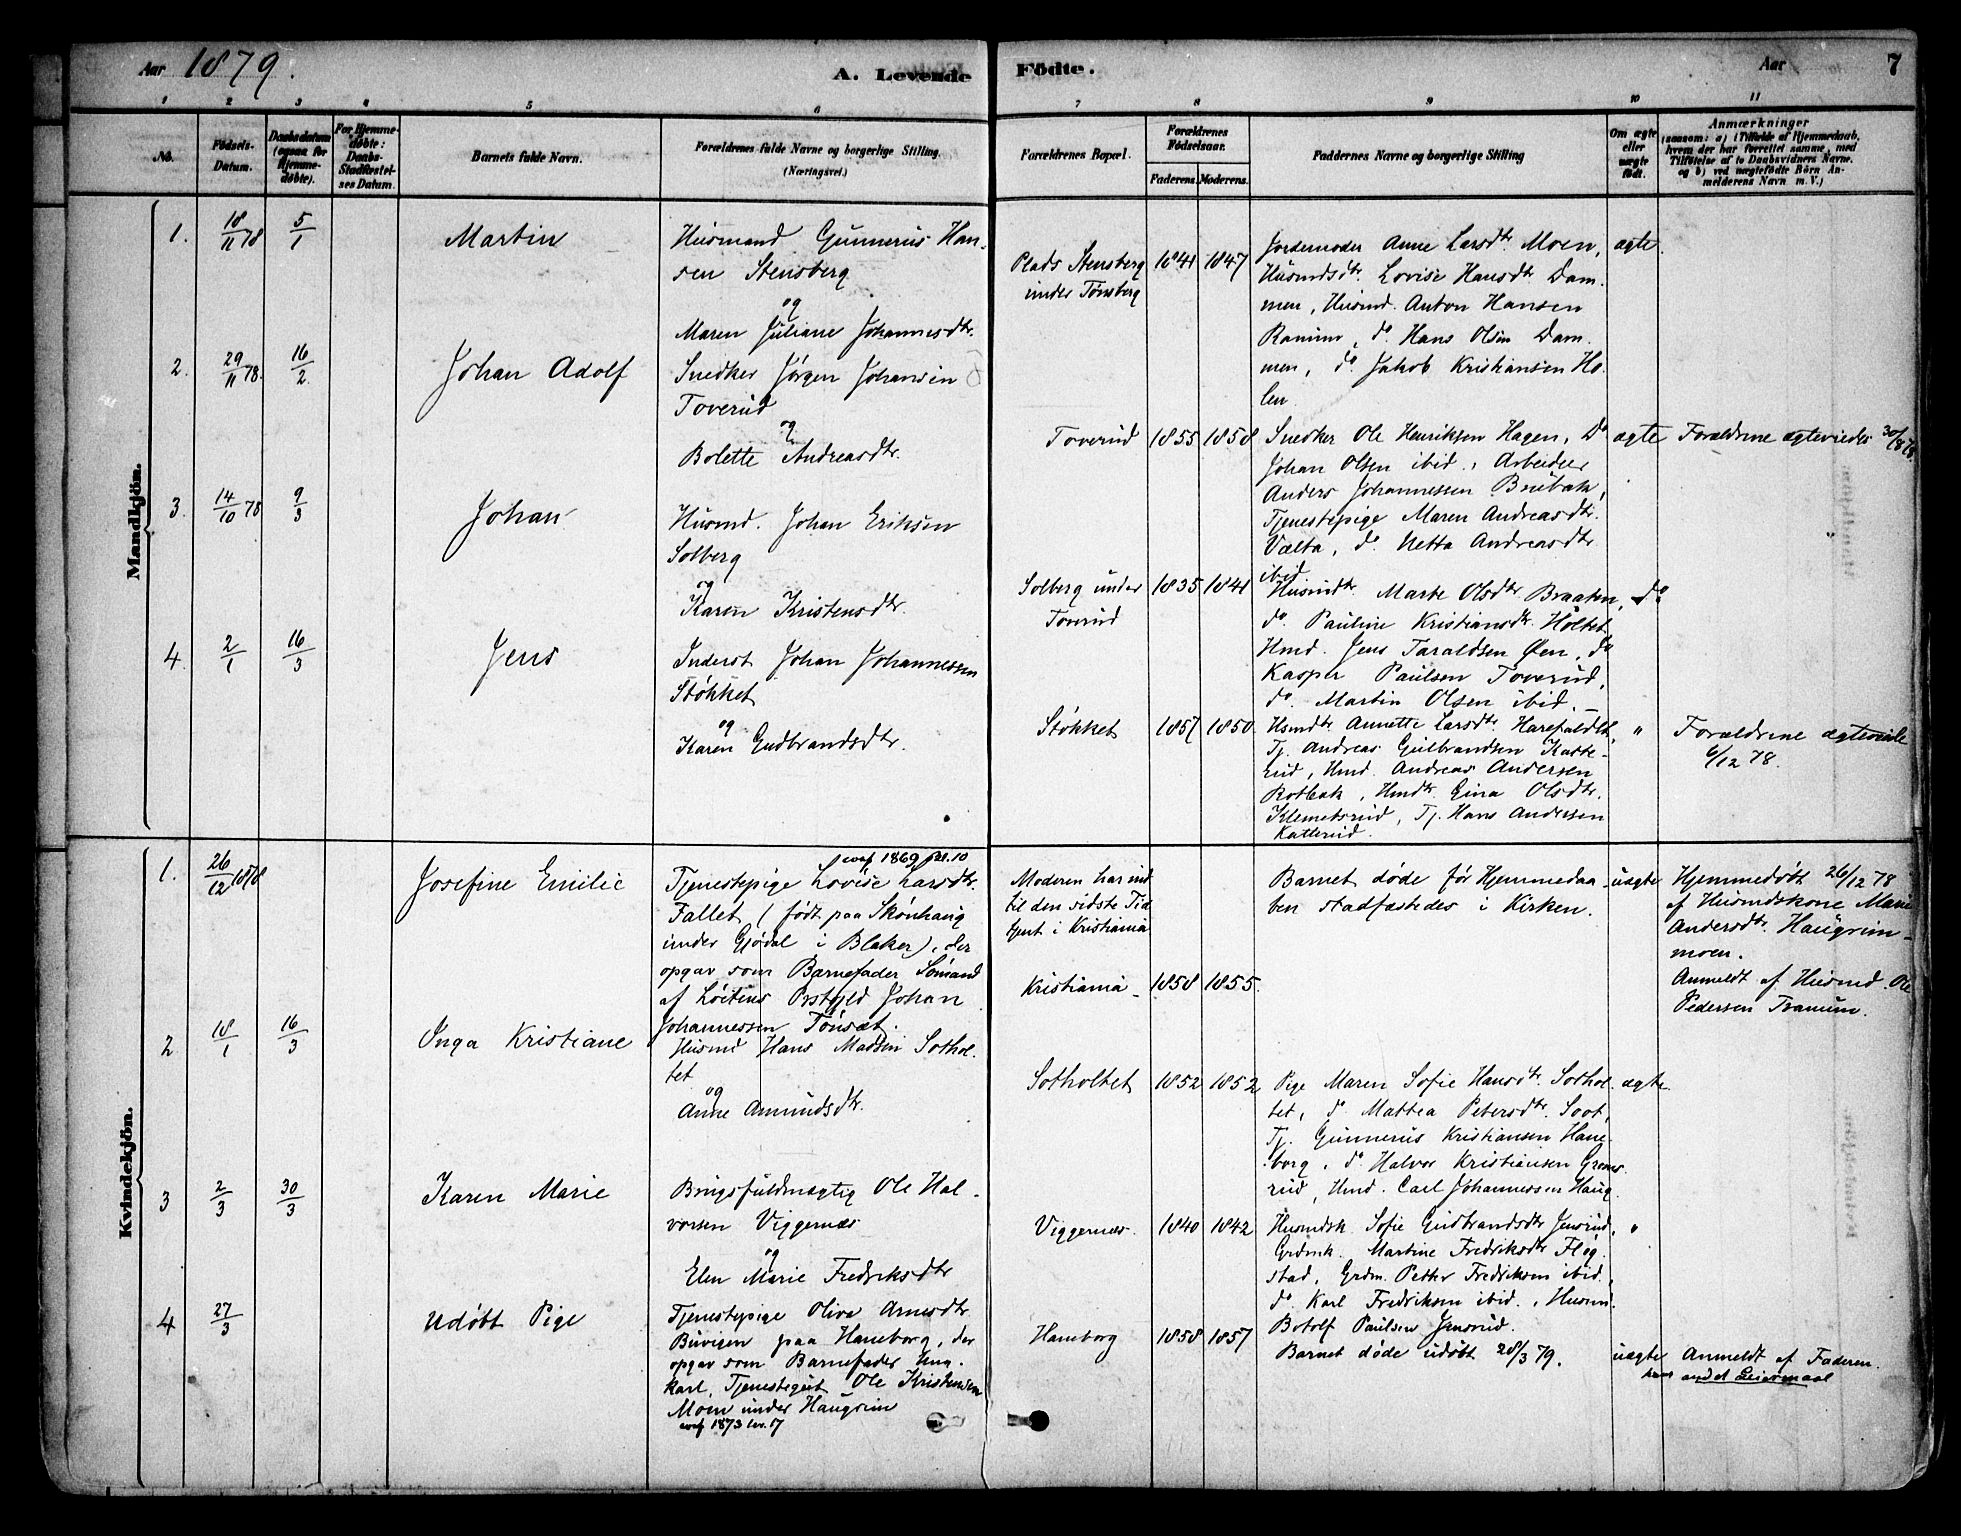 Aar 1879.
A. Levende Födte.
Aar
7
1 2 3 4 5 6 7 8 9 10 11
No.
Födsels-
Datum.
Daabsdatum
(ogsaa for
Hjemme-
döbte).
For Hjemme-
döbte:
Daabs-
Stadfæstel-
ses Datum.
Barnets fulde Navn.
Forældrenes fulde Navne og borgerlige Stilling.
(Næringsvei.)
Forældrenes Bopæl.
Forældrenes
Födselsaar.
Faderens. Moderens.
Faddernes Navne og borgerlige Stilling
Om ægte
eller
uægte
födt.
Anmærkninger
(saasom: a) i Tilfælde af Hjemmedaab,
hvem der har forrettet samme, med
Tilföielse af to Daabsvidners Navne.
og b) ved uægtefödte Börn An-
melderens Navn m. V.)
Mandkjön.
1. 18/11 78 5/1
Martin
Husmand Gunnerus Han-
sen Stensberg
og
Maren Juliane Johannesdtr.
Plads Stensberg
under Tønsberg
1841 1847
Jordemoder Anne Larsdtr. Moen,
Husmdsdtr Lovise Hansdtr Dam-
men, Husmd. Anton Hansen
do. Hans Olsen Dam-
men, do. Jakob Kristiansen Ho-
len
ægte
2. 29/11 78. 16/2.
Johan Adolf
Snedker Jørgen Johansen
Toverud
og
Bolette Andreasdtr.
Toverud
1855 1858
Snedker Ole Henriksen Hagen, Do
Johan Olsen ibid., Arbeider
Anders Johannessen Brubak,
Tjenestepige Maren Andreasdtr.
Vælta, do. Netta Andreasdtr
ibid
ægte
Forældrene ægteviede 30/8 78.
3. 14/10 78 9/3
Johan
Husmd. Johan Eriksen
Solberg
og
Karen Kristensdtr.
Solberg under
Toverud
1835 1841
Husmdtr. Marte Olsdtr. Braaten,
do. Pauline Kristiansdtr. Holtet
Hmd. Jens Taraldsen Øen, do
Kasper Paulsen Toverud,
do. Martin Olsen ibid.
do
4. 2/1 16/3
Jens
Inderst Johan Johannessen
Støkket
og
Karen Gudbrandsdtr.
Støkket
1857 1850
Hsmdtr Annette Larsdtr.
Tj. Andreas Gulbrandsen Katte-
rud, Hmd. Andreas Andersen
Botbak, Hmdtr. Gina Olsdtr.
Klemetsrud, Tj. Hans Andersen
Katterud.
"
Forældrene ægteviede
6/12 78.
Kvindekjön.
1. 26/12 1878
Josefine Emilie
conf 1869 pr. 10
Tjenestepige Lovise Larsdtr.
Fallet (født paa Skønhaug
under Gjødal i Blaker), der
opgav som Barnefader Sømand
af Løitens Prstgld Johan
Johannessen Tønsæt.
Moderen har ind
til den sidste Tid
tjent i Kristiania
Kristiania
1858 1855.
Barnet døde før Hjemmedaa-
ben stadfæstedes i Kirken.
uægte
Hjemmedøbt 26/12 78
af Husmdskone Marie
Andersdtr. Haugrim-
moen.
Anmeldt af Husmd. Ole
Pedersen Tranum.
2 18/1 16/3
Inga Kristiane
Husmd Hans Madsen Sothol-
tet
og
Anne Amundsdtr.
Sotholtet
1852 1852
Pige Maren Sofie Hansdtr. Sothol-
tet, do. Mattea Petersdtr. Soot,
Tj. Gunnerus Kristiansen Hane-
borg, do. Halvor Kristiansen Grøns-
rud, Hmd. Carl Johannessen Haug.
ægte
3 2/3 30/3
Karen Marie
Brugsfuldmægtig Ole Hal-
vorsen Viggernæs
og
Elen Marie Fredriksdtr
Viggernæs.
1840 1842
Husmdsk. Sofie Gudbrandsdtr Jensrud,
Grdmk. Martine Fredriksdtr Fløg-
stad, Grdm. Petter Fredriksen ibid.,
do. Karl Fredriksen ibid., Husmd.
Botolf Paulsen Jensrud.
"
4 27/3
Udøbt Pige
Tjenestepige Oliva Arnesdtr
Buvigen paa Haneborg, der
opgav som Barnefader Ung-
karl, Tjenestegut Ole Kristensen
Moen under Haugrim
conf 1873 lev. 17
Haneborg
1858 1857
Barnet døde udøbt 28/3 79.
uægte
Anmeldt af Faderen.
hans andet Leiermaal